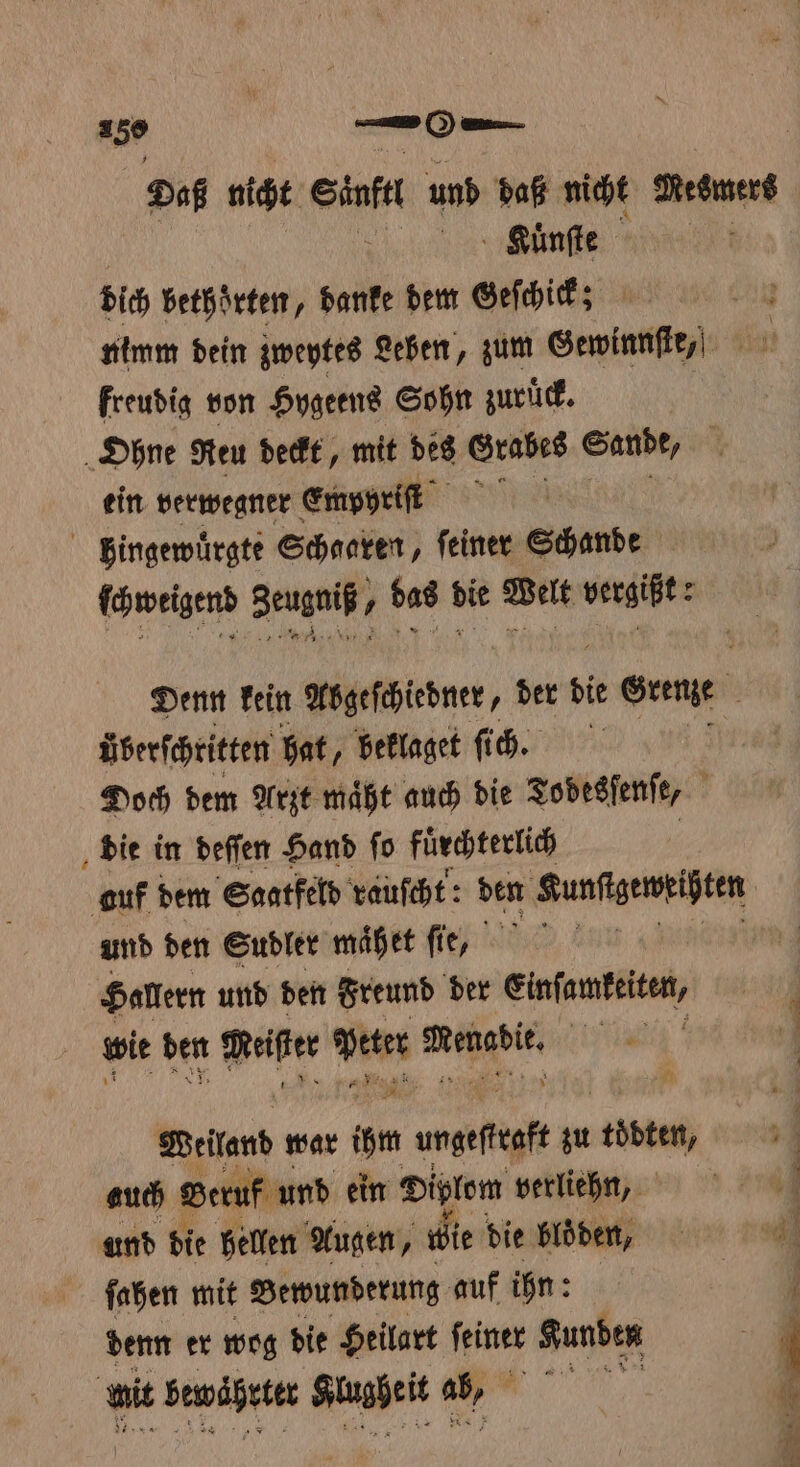 150
Daß nicht Sänftl und daß nicht Mesmers
Künſte
dich bethörten, danke dem Geſchick;
nimm dein zweytes Leben, zum Gewinnſte,
freudig von Hygeens Sohn zurück.
Ohne Reu deckt, mit des Grabes Sande,
ein verwegner Empyriſt
hingewürgte Schaaren, ſeiner Schande
ſchweigend Zeugniß, das die Welt vergißt:
Denn kein Abgeſchiedner, der die Grenze
überſchritten hat, beklaget ſich.
Doch dem Arzt mäht auch die Todesſenſe,
die in deſſen Hand ſo fürchterlich
auf dem Saatfeld rauſcht: den Kunſtgeweihten
und den Sudler mähet ſie,
Hallern und den Freund der Einſamkeiten,
wie den Meiſter Peter Menadie.
Weiland war ihm ungeſtraft zu tödten,
auch Beruf und ein Diplom verliehn,
und die hellen Augen, wie die blöden,
ſahen mit Bewunderung auf ihn:
denn er wog die Heilart ſeiner Kunden
mit bewährter Klugheit ab,